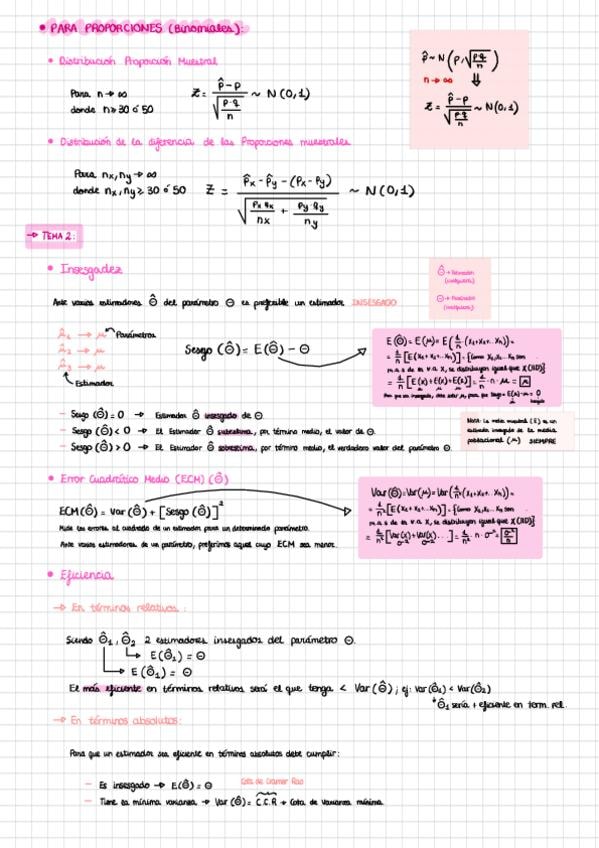 • PARA PROPORCIONES (Binomiales):
• Distribución Proporción Muestral
Para n → ∞
donde n ≥ 30 ó 50
Z = (p̂ - p) / √(p·q / n) ~ N(0,1)
p̂ ~ N(p, √(pq / n))
n → ∞ ⇓
Z = (p̂ - p) / √(p·q / n) ~ N(0,1)
• Distribución de la diferencia de las Proporciones muestrales
Para nx, ny → ∞
donde nx, ny ≥ 30 ó 50
Z = (p̂x - p̂y - (px - py)) / √(px qx / nx + py·qy / ny) ~ N(0,1)
→ TEMA 2:
• Insesgadez
Θ̂ → Estimador
Θ → Parámetro
Ante varios estimadores Θ̂ del parámetro Θ es preferible un estimador INSESGADO
μ̂1 → μ Parámetros
μ̂2 → μ
μ̂3 → μ
Estimador
Sesgo (Θ̂) = E(Θ̂) - Θ
E(Θ̂) = E(μ) = E(1/n (x1 + x2 + ... xn)) =
= 1/n [E(x1 + x2 + ... xn)] = {como x1, x2... xn son
m.a.s de la v.a X, se distribuyen igual que X (IID)}
= 1/n [E(x) + E(x) + E(x)] = 1/n · n · μ = μ
μ μ μ
- Sesgo (Θ̂) = 0 → Estimador Θ̂ insesgado de Θ.
- Sesgo (Θ̂) < 0 → El Estimador Θ̂ subestima, por término medio, el valor de Θ.
- Sesgo (Θ̂) > 0 → El Estimador Θ̂ sobrestima, por término medio, el verdadero valor del parámetro Θ.
Nota: La media muestral (x̄) es un
estimador insesgado de la media
poblacional (μ) SIEMPRE
• Error Cuadrático Medio (ECM) (Θ̂)
ECM(Θ̂) = Var(Θ̂) + [Sesgo (Θ̂)]²
Mide los errores al cuadrado de un estimador para un determinado parámetro.
Ante varios estimadores de un parámetro, preferimos aquel cuyo ECM sea menor.
Var(Θ̂) = Var(μ) = Var(1/n (x1 + x2 + ... xn)) =
= 1/n² [E(x1 + x2 + ... xn)] = {como x1, x2... xn son
m.a.s de la v.a X, se distribuyen igual que X (IID)}
= 1/n² [Var(x) + Var(x) ...] = 1/n² · n · σ² = σ²/n
σ² σ²
• Eficiencia
→ En términos relativos:
Siendo Θ̂1, Θ̂2 2 estimadores insesgados del parámetro Θ.
→ E(Θ̂1) = Θ
→ E(Θ̂1) = Θ
El más eficiente en términos relativos será el que tenga < Var (Θ̂); ej: Var(Θ̂1) < Var(Θ̂2)
Θ̂1 sería + eficiente en term. rel.
→ En términos absolutos:
Para que un estimador sea eficiente en términos absolutos debe cumplir:
- Es insesgado → E(Θ̂) = Θ
Cota de Cramer Rao
- Tiene la mínima varianza → Var(Θ̂) = C.C.R → Cota de Varianza mínima